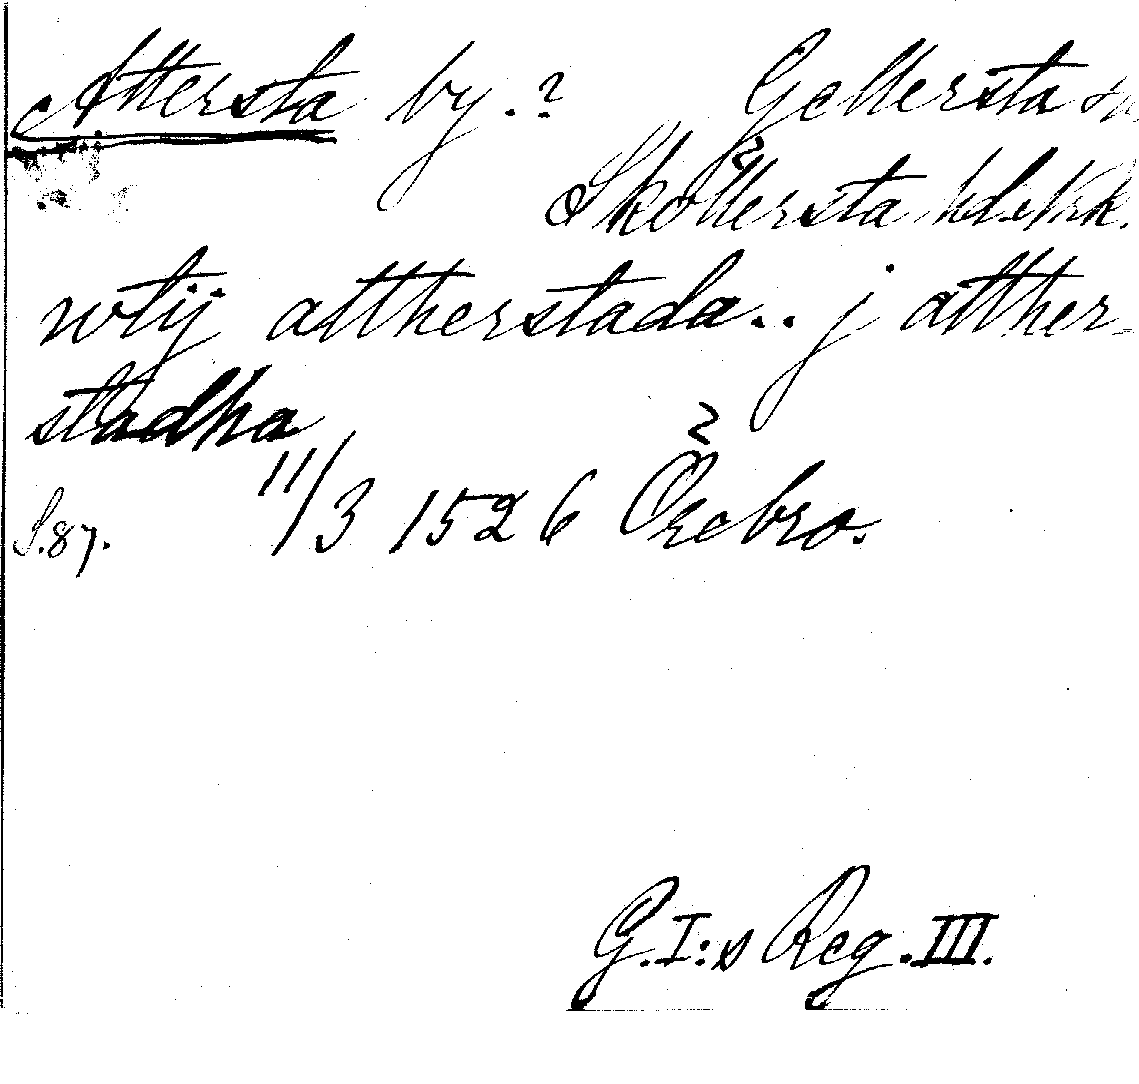 Attersta by.? Gellersta sn
Sköllersta hd. Nrk.
wtij attherstada.. j atther-
stadha
S.87. 11/3 1526 Örebro.
G.I:s Reg. III.